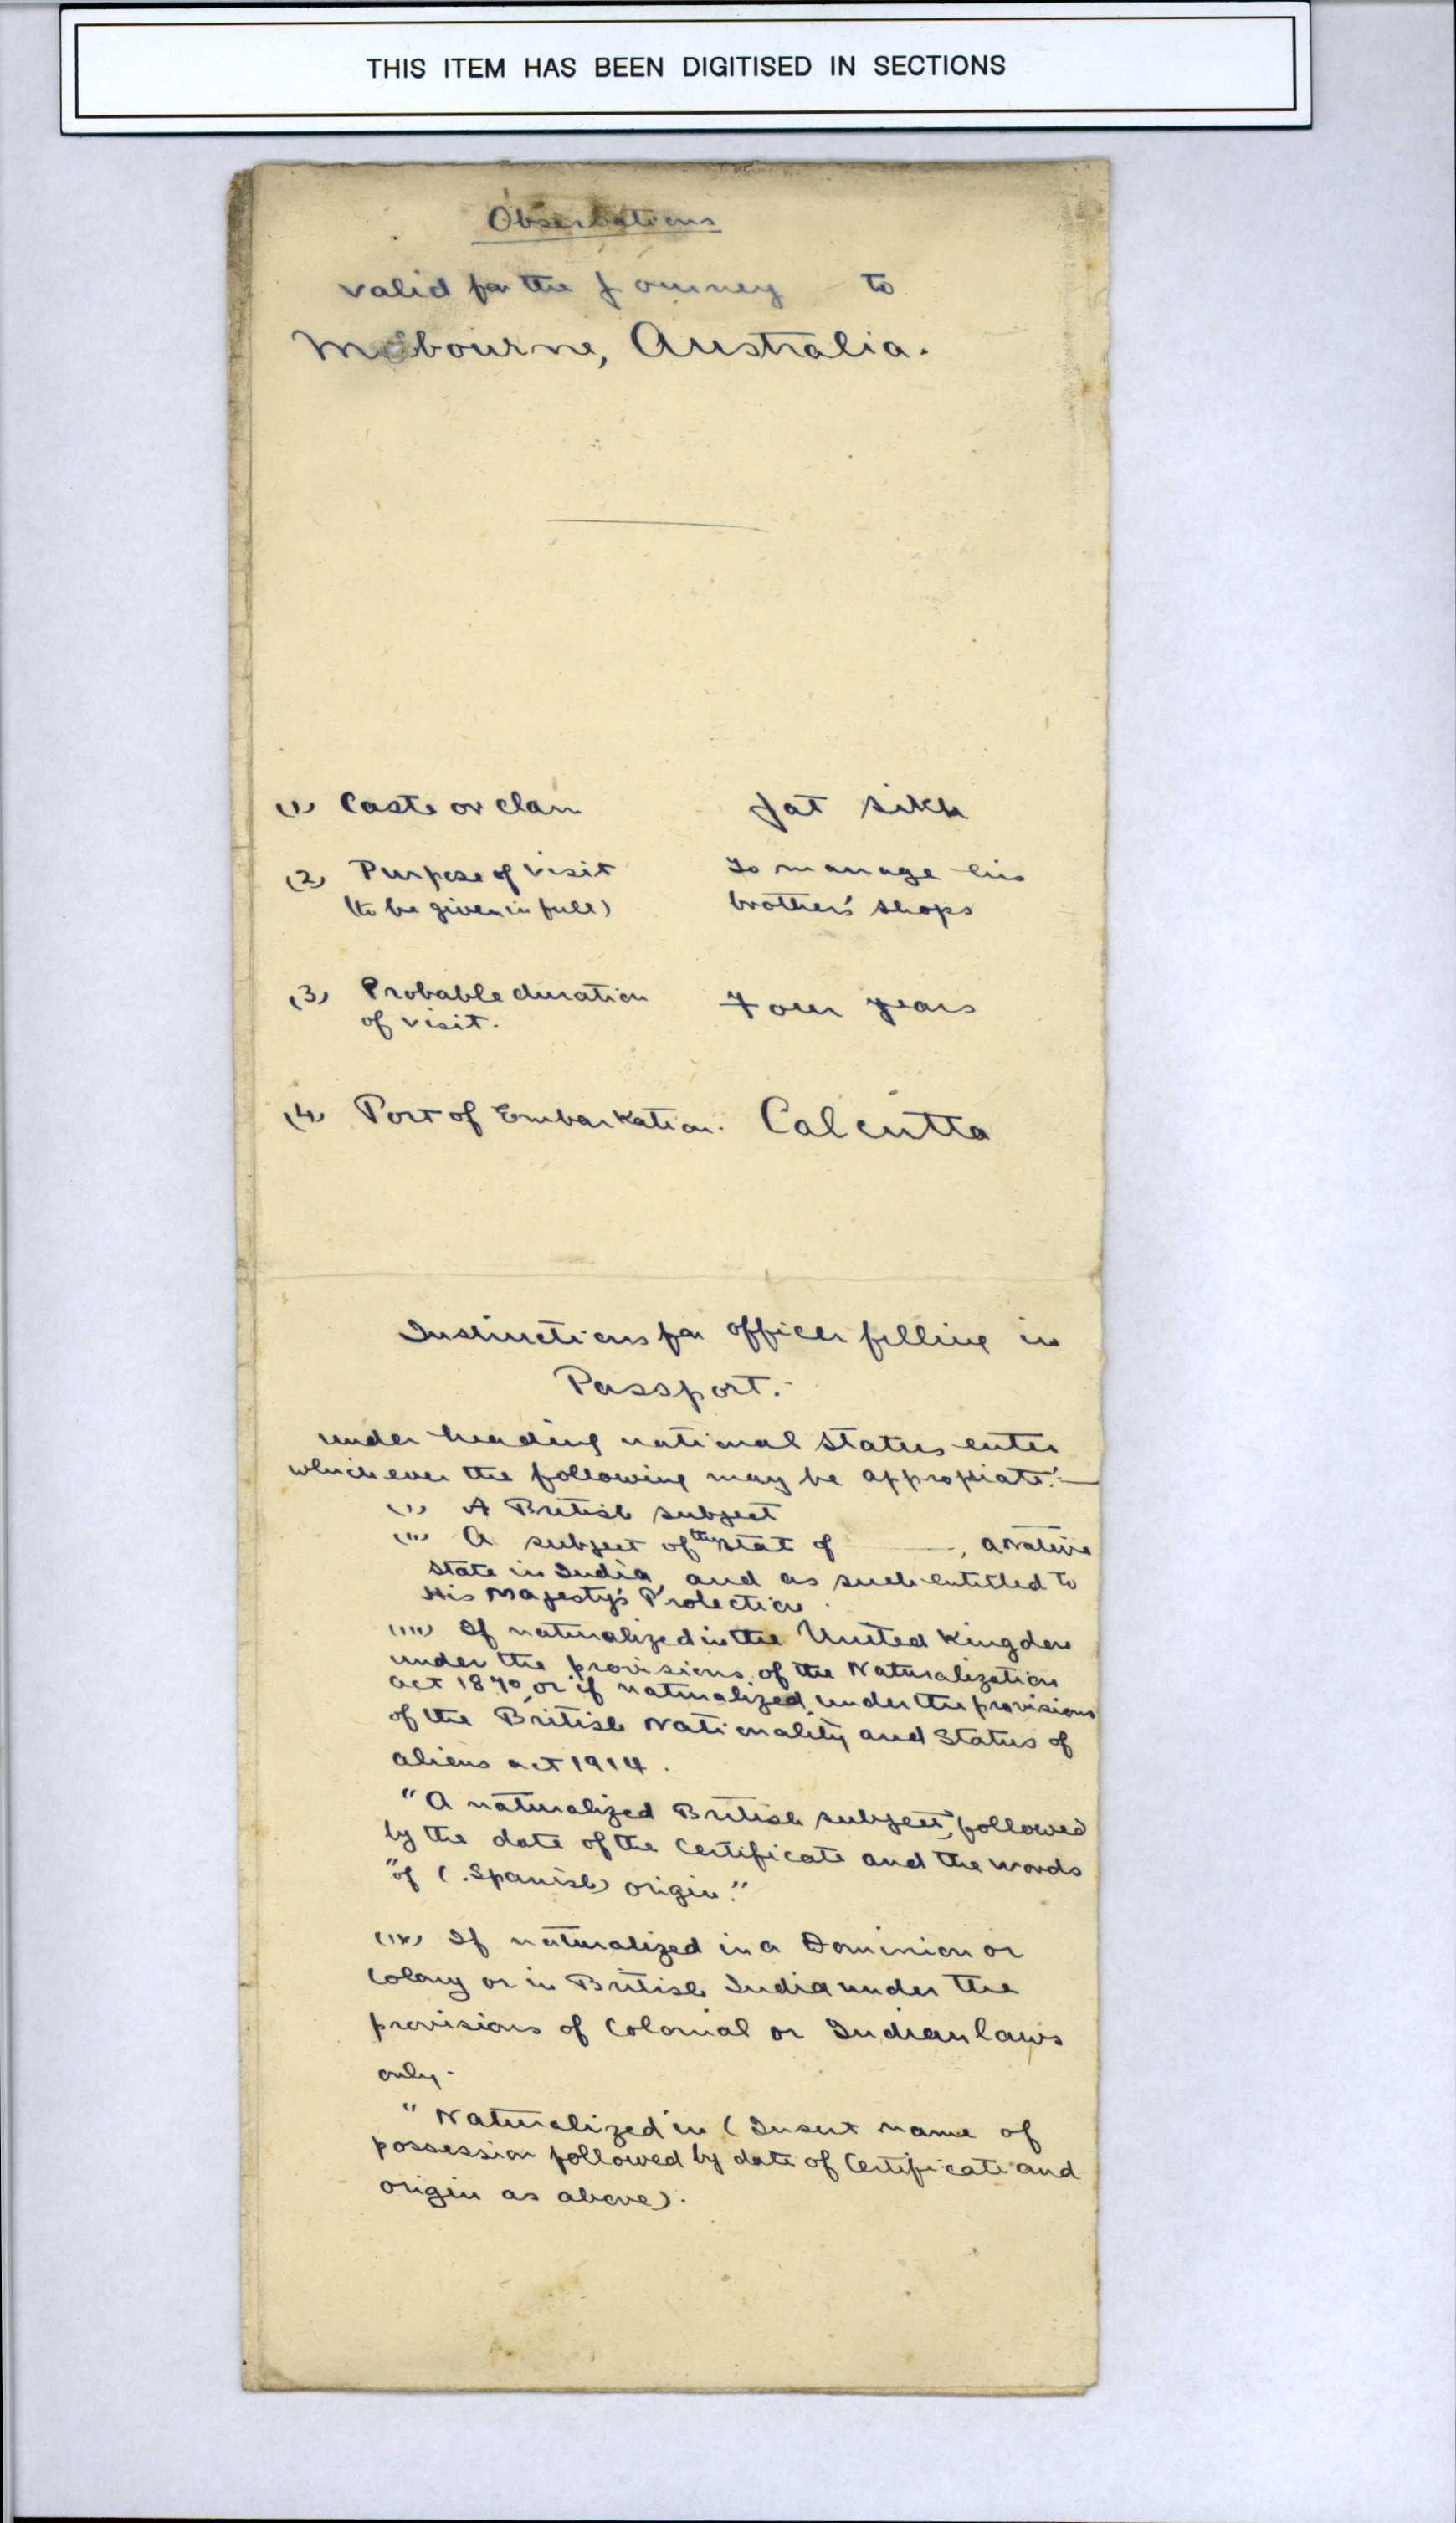 THIS ITEM HAS BEEN DIGITISED IN SECTIONS
Observations
valid for the Journey to
Melbourne, Australia.
(1) Caste or clan Jat Sikh
(2) Purpose of visit To manage his
(to be given in full) brother's shops
(3) Probable duration Four years
of visit.
(4) Port of Embarkation. Calcutta
Instructions for officer filling in
Passport.-
under heading national status enter
whichever the following may be appropiate:-
(1) A British subject
(11) A subject of the stat of ———, a native
state in India, and as such entitled to
His Majesty's Protection.
(111) If naturalized in the United Kingdom
under the provisions of the Naturalization
act 1870, or if naturalized under the provisions
of the British Nationality and Status of
aliens act 1914.
"A naturalized British subject", followed
by the date of the Certificate and the words
"of (Spanish) origin."
(1V) If naturalized in a Dominion or
Colony or in British India under the
provisions of Colonial or Indian laws
only.
"Naturalized in (Insert name of
possession followed by date of Certificate and
origin as above).